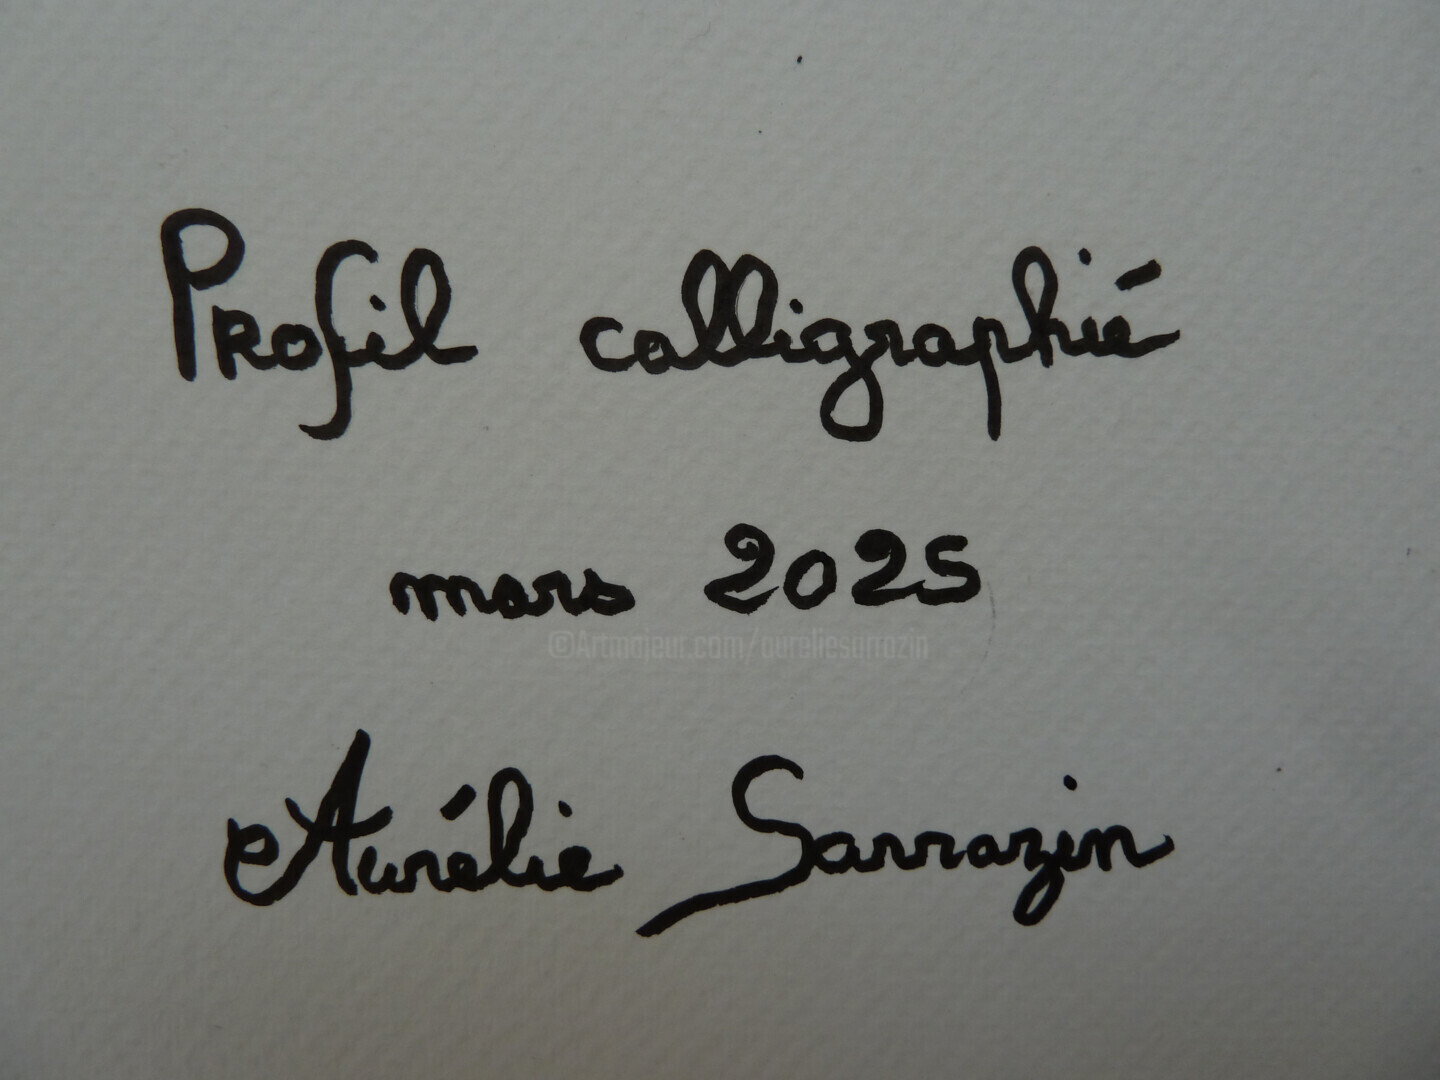 Profil calligraphié
mars 2025
©Artmajeur.com/aureliesarrazin
Aurélie Sarrazin